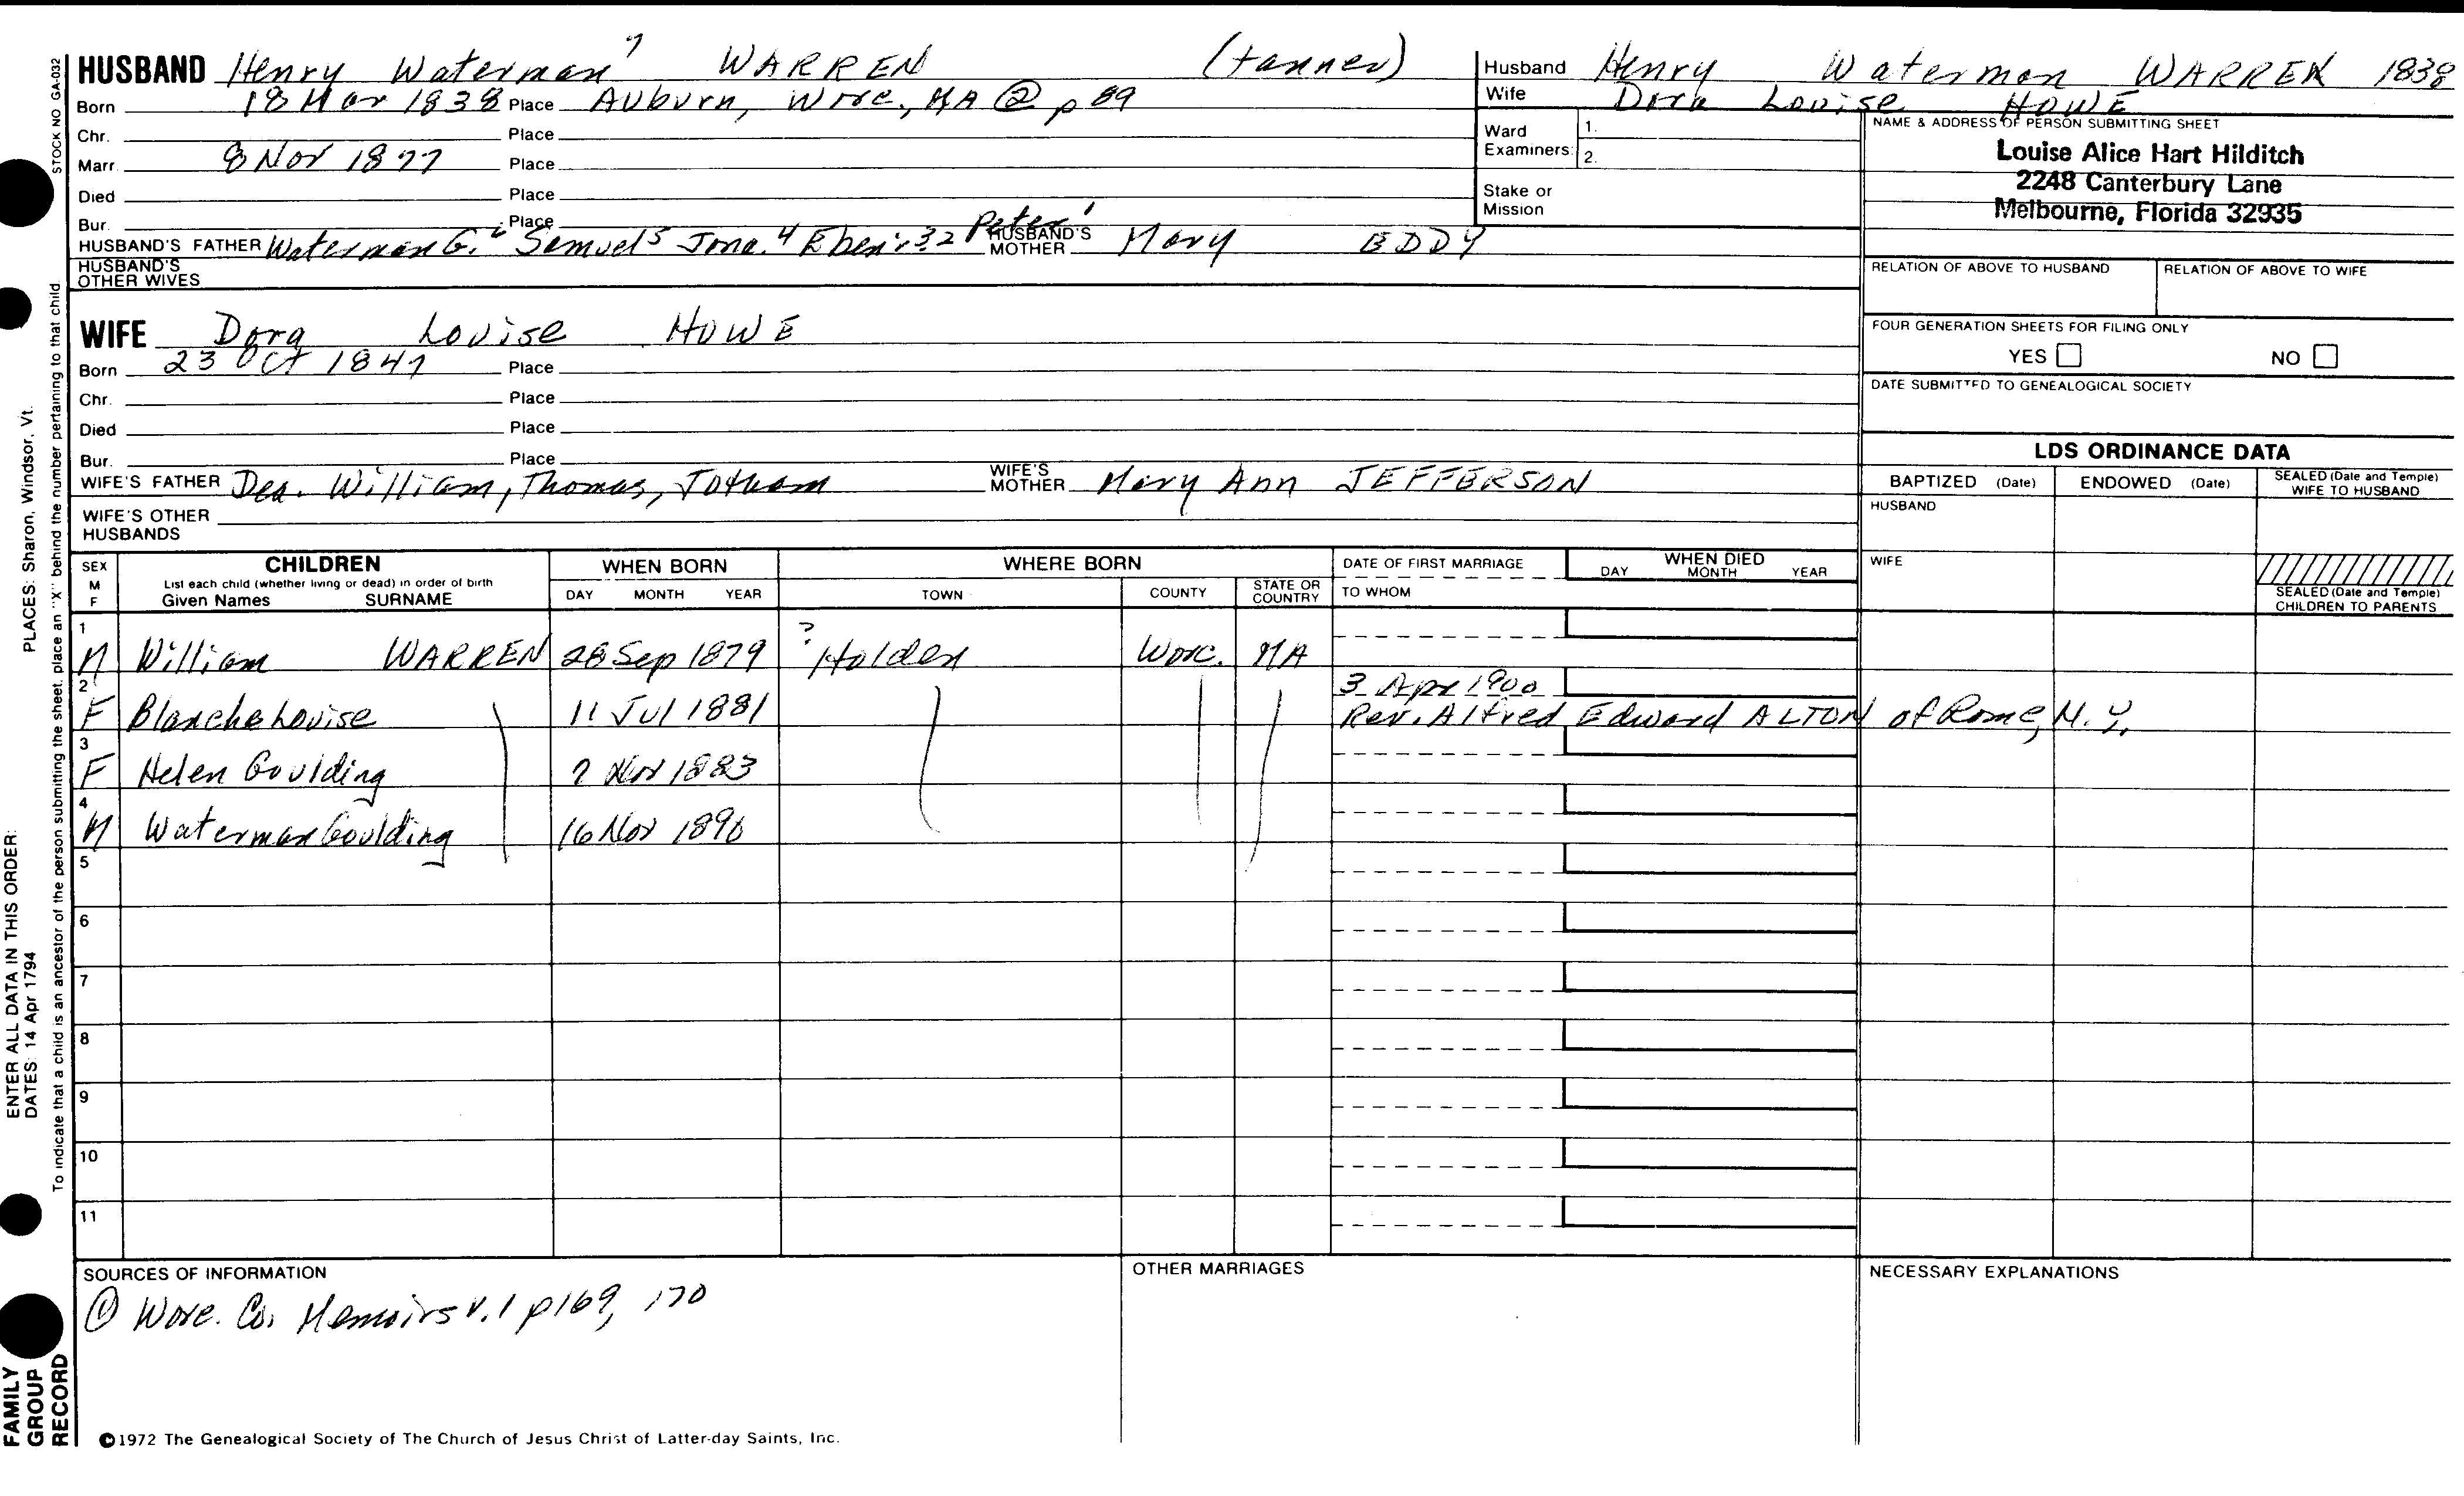 HUSBAND Henry Waterman 7 WARREN (tanner)
Born 18 Mar 1838 Place Auburn, Worc, MA @ p 89
Chr. Place
Marr. 8 Nov 1877 Place
Died Place
Bur. Place
HUSBAND'S FATHER Waterman G. 6 Samuel 5 Jona. 4 Eben 32 Peter 1 HUSBAND'S MOTHER Mary EDDY
HUSBAND'S OTHER WIVES
Husband Henry Waterman WARREN 1838
Wife Dora Louise HOWE
Ward Examiners: 1.
2.
Stake or Mission
NAME & ADDRESS OF PERSON SUBMITTING SHEET
Louise Alice Hart Hilditch
2248 Canterbury Lane
Melbourne, Florida 32935
RELATION OF ABOVE TO HUSBAND RELATION OF ABOVE TO WIFE
FOUR GENERATION SHEETS FOR FILING ONLY
YES NO
DATE SUBMITTED TO GENEALOGICAL SOCIETY
WIFE Dora Louise HOWE
Born 23 Oct 1847 Place
Chr. Place
Died Place
Bur. Place
WIFE'S FATHER Dea. William, Thomas, Jotham WIFE'S MOTHER Mary Ann JEFFERSON
WIFE'S OTHER HUSBANDS
LDS ORDINANCE DATA
BAPTIZED (Date) ENDOWED (Date) SEALED (Date and Temple) WIFE TO HUSBAND
HUSBAND
WIFE
SEALED (Date and Temple) CHILDREN TO PARENTS
SEX M F
CHILDREN
List each child (whether living or dead) in order of birth
Given Names SURNAME
WHEN BORN
DAY MONTH YEAR
WHERE BORN
TOWN COUNTY STATE OR COUNTRY
DATE OF FIRST MARRIAGE
TO WHOM
WHEN DIED
DAY MONTH YEAR
1 M William WARREN 28 Sep 1879 ? Holden Worc. MA
3 Apr 1900
2 F Blanche Louise 11 Jul 1881 Rev. Alfred Edward ALTON of Rome, N.Y.
3 F Helen Goulding Nov 1883
4 M Waterman Goulding 16 Nov 1890
5
6
7
8
9
10
11
SOURCES OF INFORMATION
① Worc. Co. Memoirs v. 1 p169, 170
OTHER MARRIAGES
NECESSARY EXPLANATIONS
©1972 The Genealogical Society of The Church of Jesus Christ of Latter-day Saints, Inc.
STOCK NO. GA-032
To indicate that a child is an ancestor of the person submitting the sheet, place an "X" behind the number pertaining to that child
ENTER ALL DATA IN THIS ORDER:
DATES: 14 Apr 1794
PLACES: Sharon, Windsor, Vt.
FAMILY
GROUP
RECORD